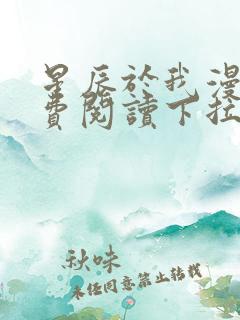 星辰於我漫
費閱讀下拉
秋味
未经同意禁止转载